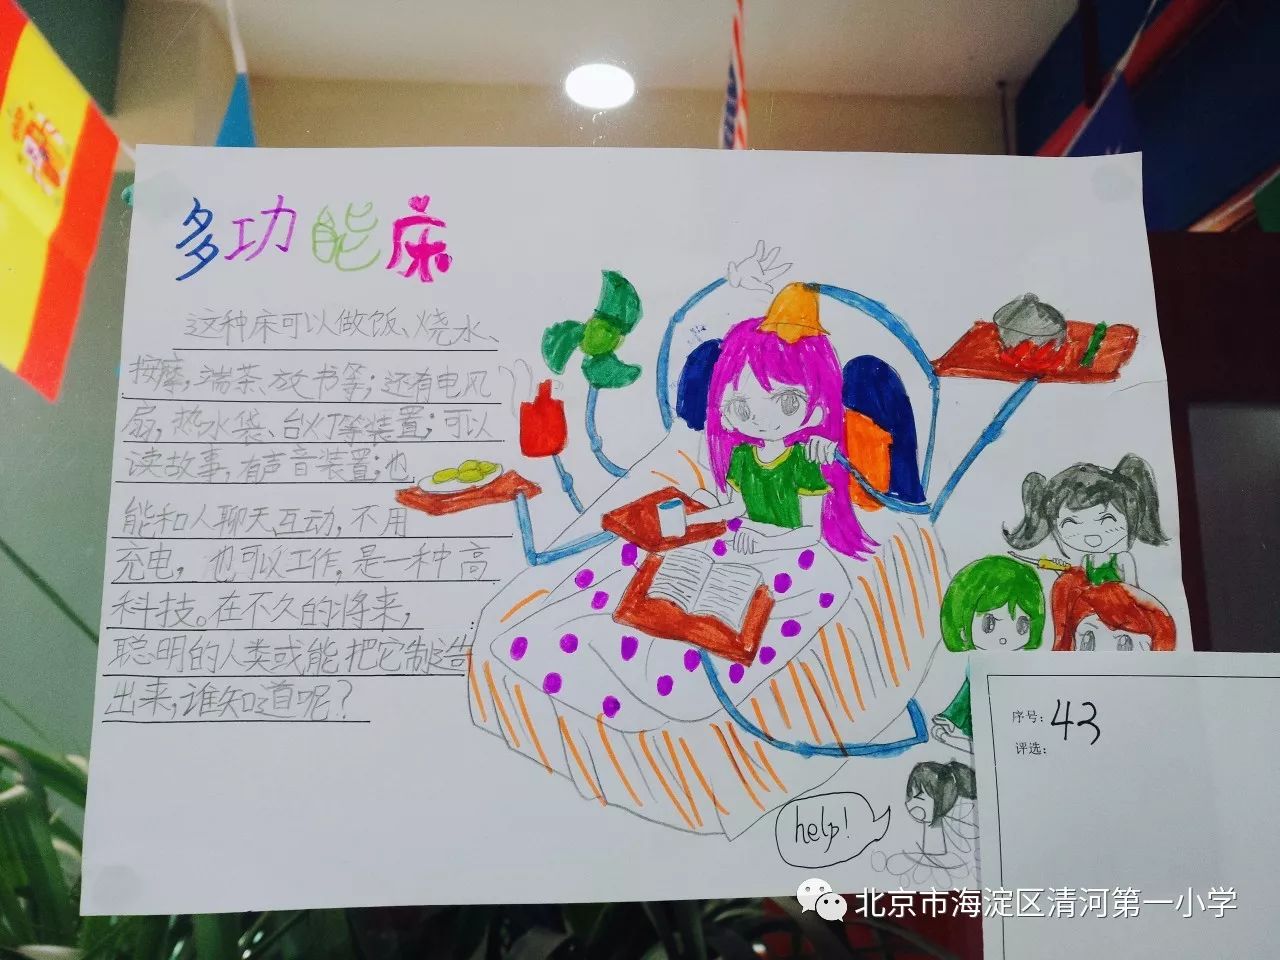 多功能床
这种床可以做饭、烧水、
按摩,端茶、放书等;还有电风
扇,热水袋、台灯等装置;可以
读故事,有声音装置;也
能和人聊天互动,不用
充电,也可以工作,是一种高
科技。在不久的将来,
聪明的人类或能把它制造
出来,谁知道呢?
help!
序号:43
评选:
北京市海淀区清河第一小学